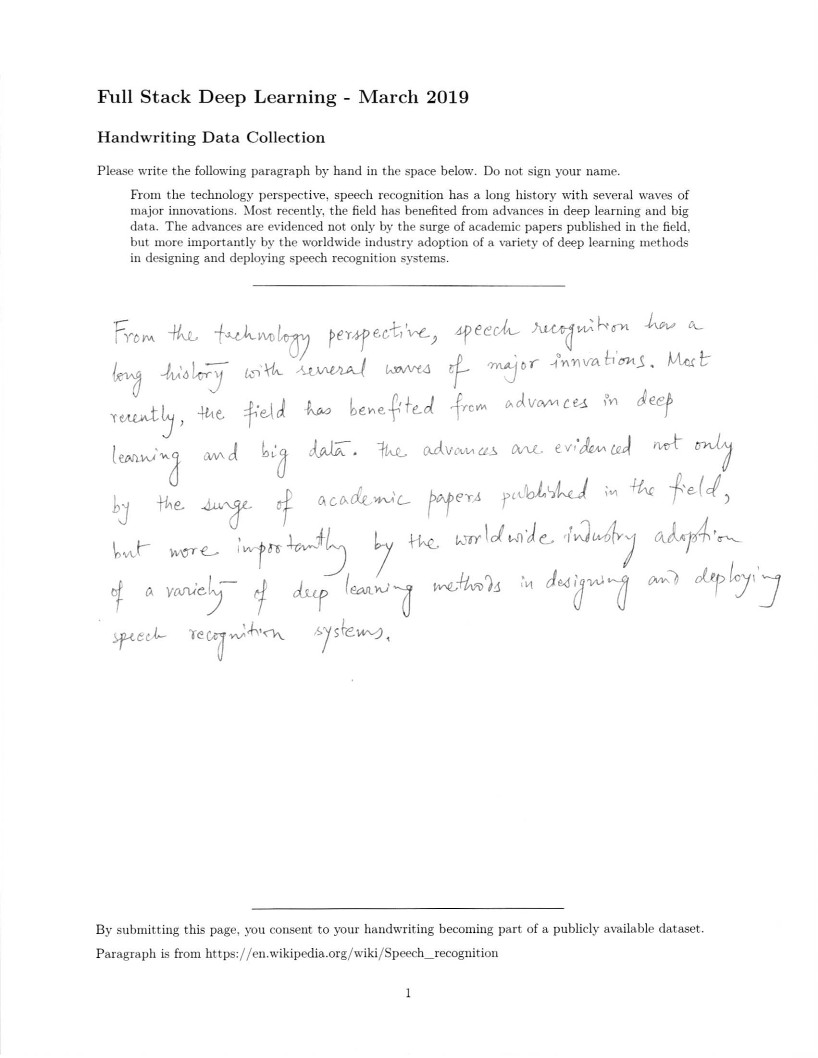 Full Stack Deep Learning - March 2019
Handwriting Data Collection
Please write the following paragraph by hand in the space below. Do not sign your name.
From the technology perspective, speech recognition has a long history with several waves of
major innovations. Most recently, the field has benefited from advances in deep learning and big
data. The advances are evidenced not only by the surge of academic papers published in the field,
but more importantly by the worldwide industry adoption of a variety of deep learning methods
in designing and deploying speech recognition systems.
From the technology perspective, speech recognition has a
long history with several waves of major innvations. Most
recently, the field has benefited from advances in deep
learning and big data. The advances are evidenced not only
by the surge of academic papers published in the field,
but more importantly by the worldwide industry adoption
of a variety of deep learning methods in designing and deploying
speech recognition systems.
By submitting this page, you consent to your handwriting becoming part of a publicly available dataset.
Paragraph is from https://en.wikipedia.org/wiki/Speech_recognition
1